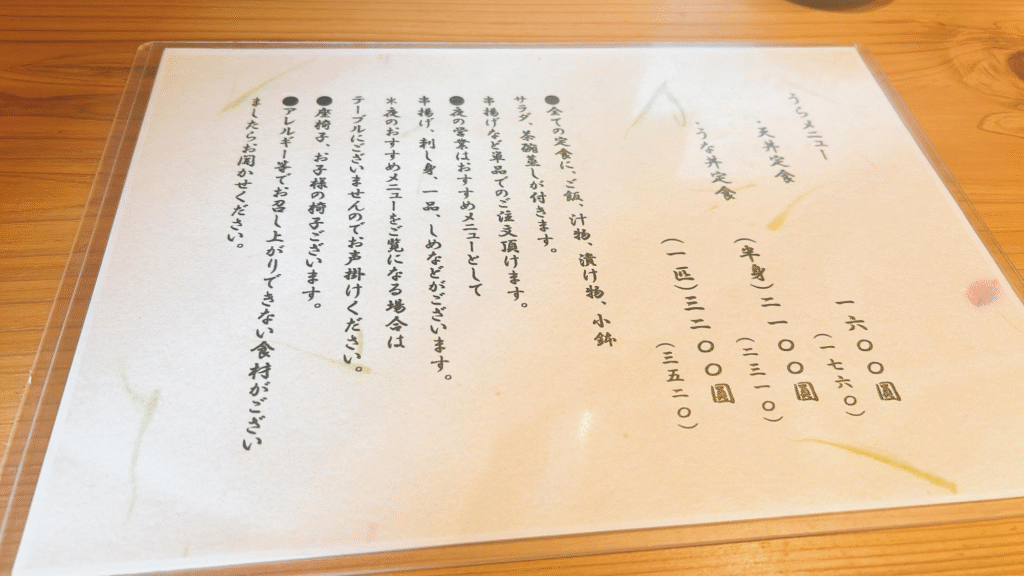 うらメニュー
・天丼定食
一六〇〇圓
(一七六〇)
・うな丼定食
(半身)二一〇〇圓
(二三一〇)
(一匹)三二〇〇圓
(三五二〇)
●全ての定食に、ご飯、汁物、漬け物、小鉢
サラダ、茶碗蒸しが付きます。
串揚げなど単品でのご注文頂けます。
●夜の営業はおすすめメニューとして
串揚げ、刺し身、一品、しめなどがございます。
＊夜のおすすめメニューをご覧になる場合は
テーブルにございませんのでお声掛けください。
●座椅子、お子様の椅子ございます。
●アレルギー等でお召し上がりできない食材がござい
ましたらお聞かせください。